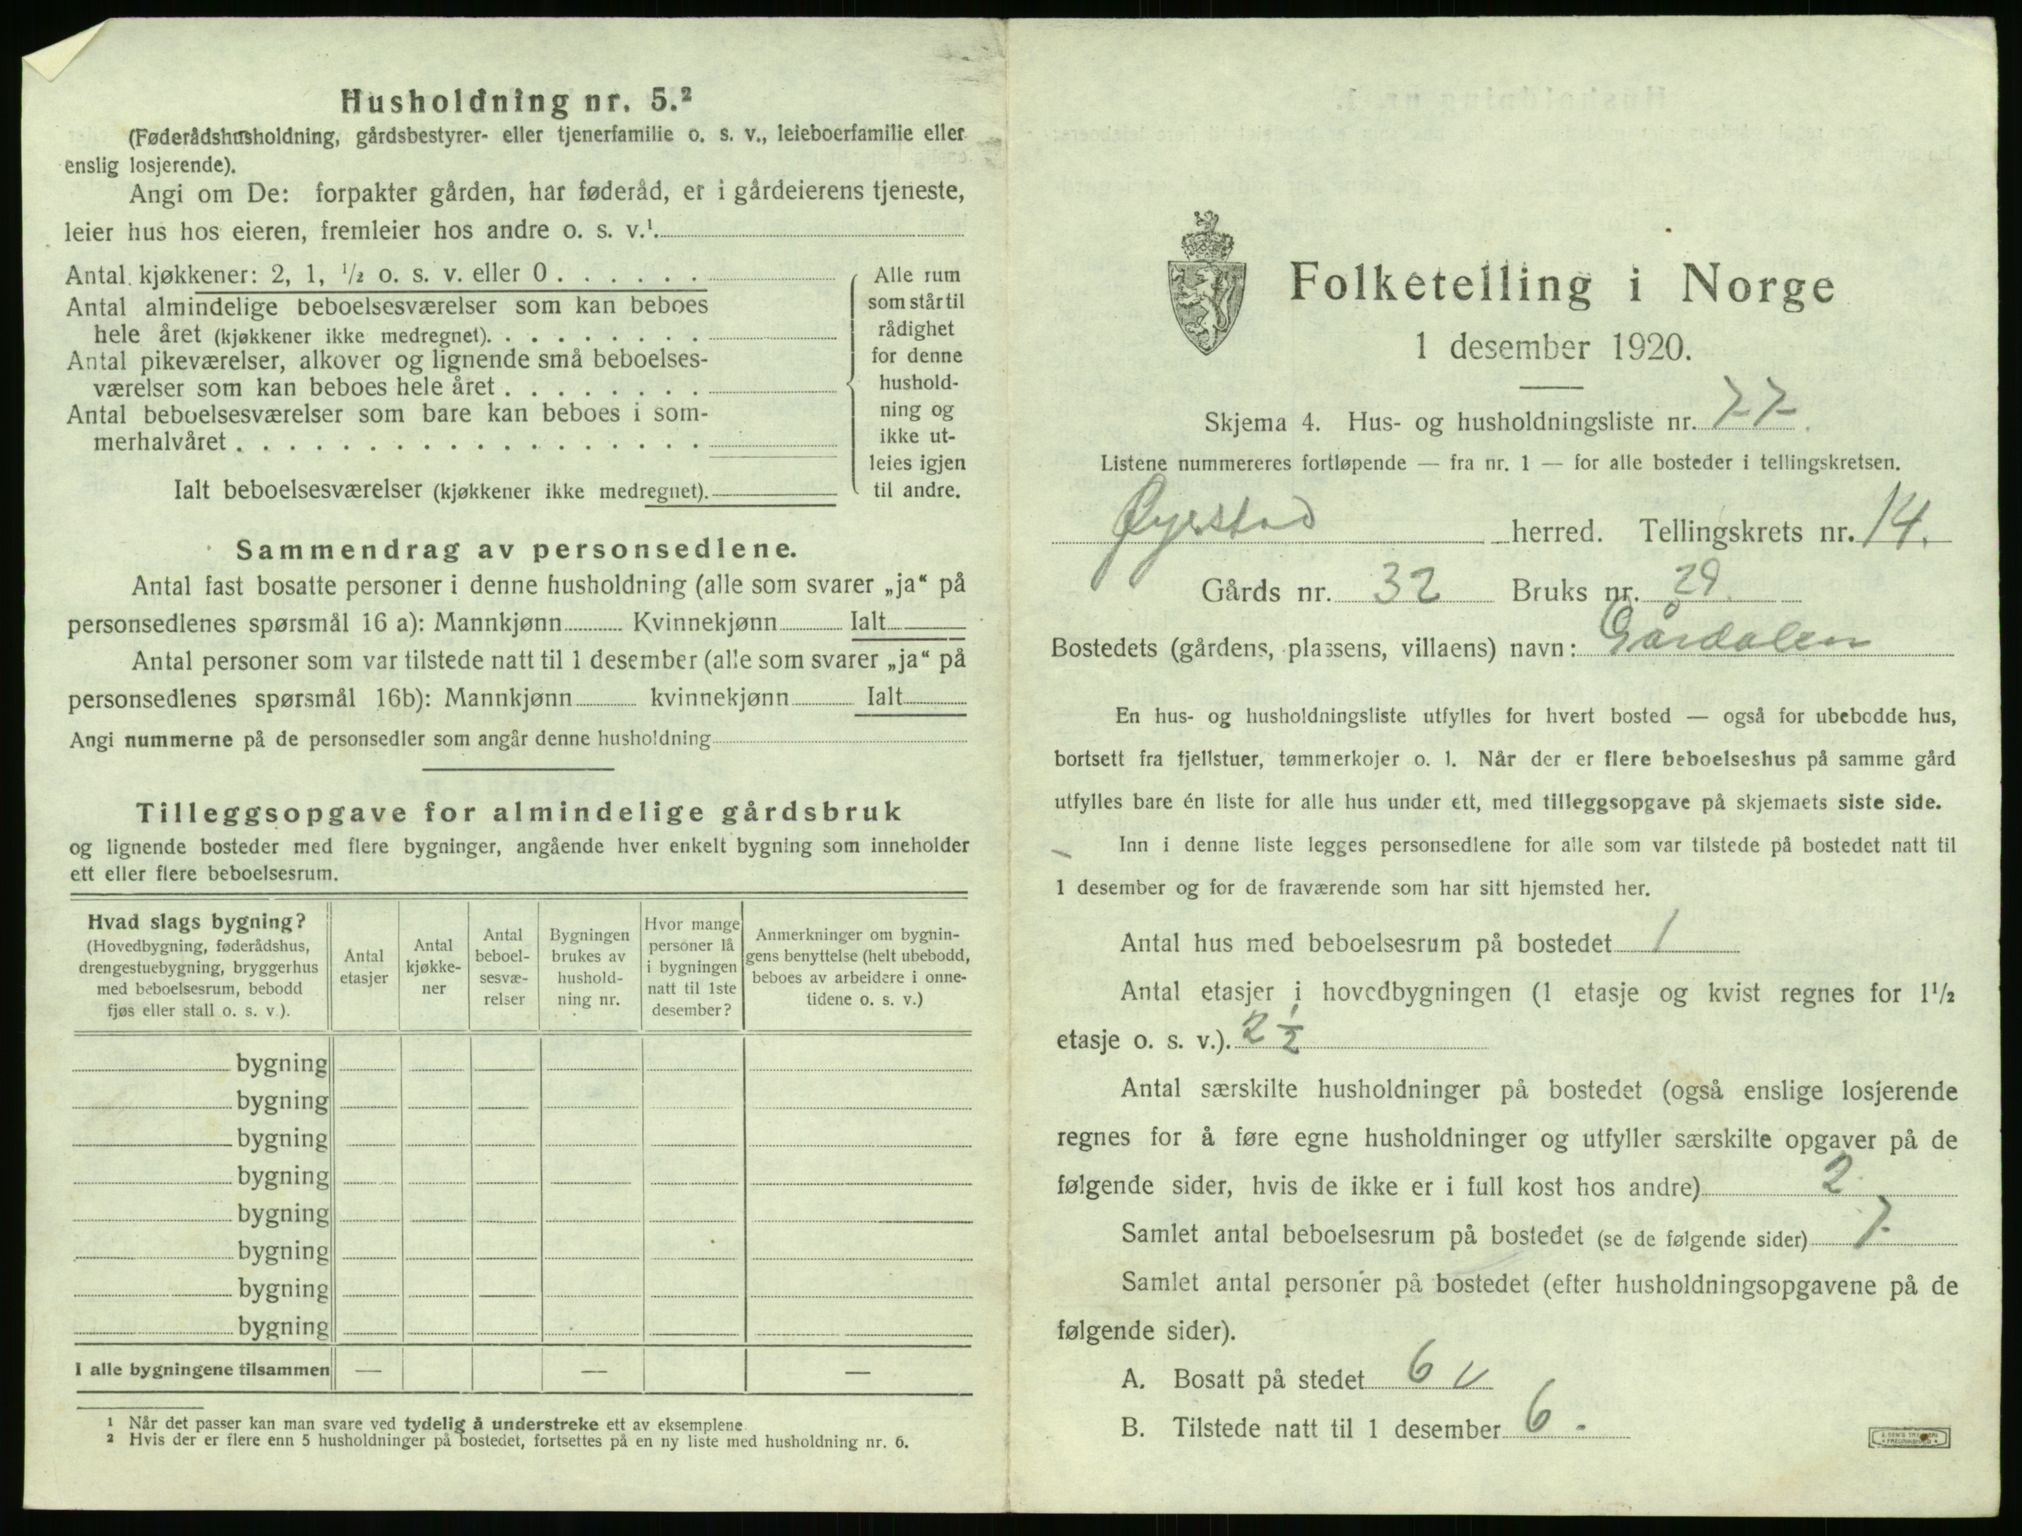 Husholdning nr. 5.²
(Føderådshusholdning, gårdsbestyrer- eller tjenerfamilie o. s. v., leieboerfamilie eller
enslig losjerende).
Angi om De: forpakter gården, har føderåd, er i gårdeierens tjeneste,
leier hus hos eieren, fremleier hos andre o. s. v.¹.
Antal kjøkkener: 2, 1, ¹/₂ o. s. v. eller 0 . . . . . .
Antal almindelige beboelsesværelser som kan beboes
hele året (kjøkkener ikke medregnet). . . . . . . . .
Antal pikeværelser, alkover og lignende små beboelses-
værelser som kan beboes hele året . . . . . . . .
Antal beboelsesværelser som bare kan beboes i som-
merhalvåret . . . . . . . . . . . . . . . . . .
Ialt beboelsesværelser (kjøkkener ikke medregnet).
Alle rum
som står til
rådighet
for denne
hushold-
ning og
ikke ut-
leies igjen
til andre.
Sammendrag av personsedlene.
Antal fast bosatte personer i denne husholdning (alle som svarer „ja“ på
personsedlenes spørsmål 16 a): Mannkjønn Kvinnekjønn Ialt
Antal personer som var tilstede natt til 1 desember (alle som svarer „ja“ på
personsedlenes spørsmål 16b): Mannkjønn kvinnekjønn Ialt
Angi nummerne på de personsedler som angår denne husholdning
Tilleggsopgave for almindelige gårdsbruk
og lignende bosteder med flere bygninger, angående hver enkelt bygning som inneholder
ett eller flere beboelsesrum.
Hvad slags bygning?
(Hovedbygning, føderådshus,
drengestuebygning, bryggerhus
med beboelsesrum, bebodd
fjøs eller stall o. s. v.).
Antal
etasjer
Antal
kjøkke-
ner
Antal
beboel-
sesvæ-
relser
Bygningen
brukes av
hushold-
ning nr.
Hvor mange
personer lå
i bygningen
natt til 1ste
desember?
Anmerkninger om bygnin-
gens benyttelse (helt ubebodd,
beboes av arbeidere i onne-
tidene o. s. v.)
bygning
bygning
bygning
bygning
bygning
bygning
bygning
bygning
I alle bygningene tilsammen — — —
¹ Når det passer kan man svare ved tydelig å understreke ett av eksemplene
² Hvis der er flere enn 5 husholdninger på bostedet, fortsettes på en ny liste med husholdning nr. 6.
Folketelling i Norge
1 desember 1920.
Skjema 4. Hus- og husholdningsliste nr. 77.
Listene nummereres fortløpende — fra nr. 1 — for alle bosteder i tellingskretsen.
Øyestad herred. Tellingskrets nr. 14.
Gårds nr. 32 Bruks nr. 29.
Bostedets (gårdens, plassens, villaens) navn: Gårdalen
En hus- og husholdningsliste utfylles for hvert bosted — også for ubebodde hus,
bortsett fra fjellstuer, tømmerkojer o. l. Når der er flere beboelseshus på samme gård
utfylles bare én liste for alle hus under ett, med tilleggsopgave på skjemaets siste side.
Inn i denne liste legges personsedlene for alle som var tilstede på bostedet natt til
1 desember og for de fraværende som har sitt hjemsted her.
Antal hus med beboelsesrum på bostedet 1
Antal etasjer i hovedbygningen (1 etasje og kvist regnes for 1¹/₂
etasje o. s. v.). 2 ½
Antal særskilte husholdninger på bostedet (også enslige losjerende
regnes for å føre egne husholdninger og utfyller særskilte opgaver på de
følgende sider, hvis de ikke er i full kost hos andre) 2
Samlet antal beboelsesrum på bostedet (se de følgende sider) 7
Samlet antal personer på bostedet (efter husholdningsopgavene på de
følgende sider).
A. Bosatt på stedet 6
B. Tilstede natt til 1 desember 6.